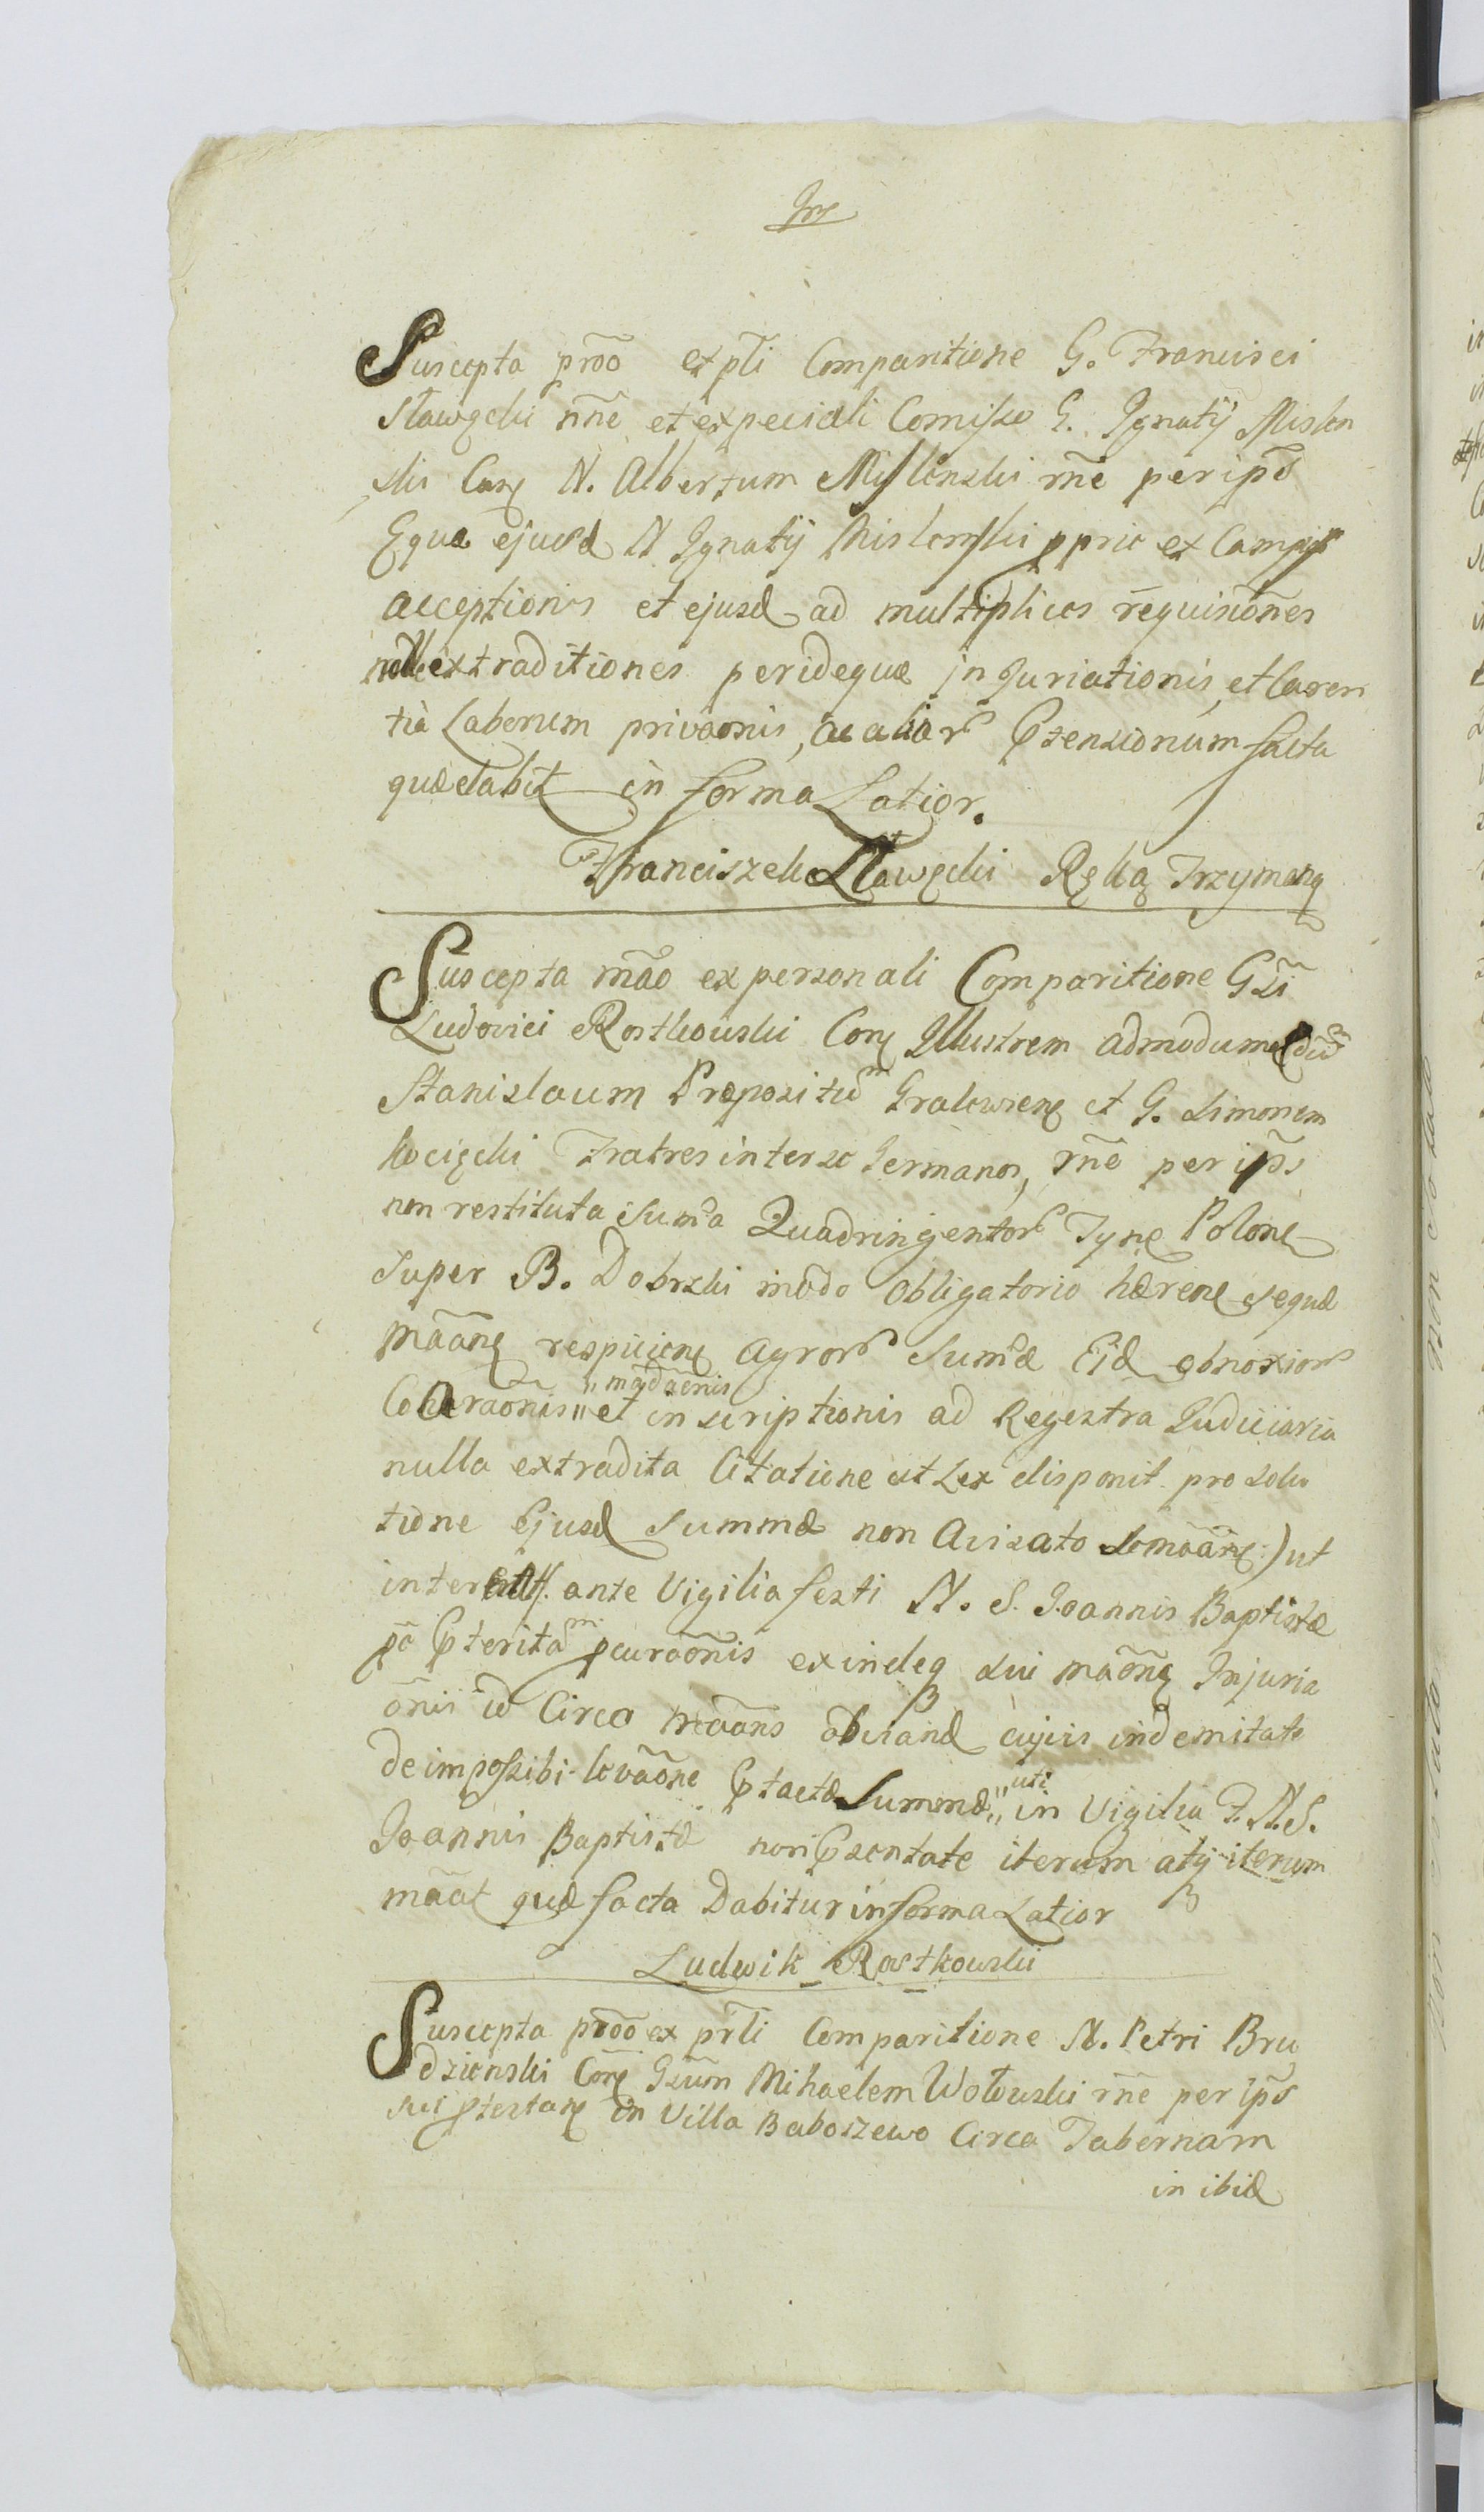 Suscepta prõo ex pĩli Comparitione G. Francisci
Sławęcki nñe et ex peciali Comisso G. Ignatij Mislen
ski Con̄ę N. Albertum Mislenski rñe per ip̃s
Equa ejusd N Ignatij Mislenski pprie ex Campis
acceptionis et ejusd ad multiplices requisiões
extraditiones per idequæ injuriationis, et Caren
tia Laborum privaonis, ac aliar Ptensionum facta
quæ dabit in forma Latior.
Franciszek Sławęcki Ręką Trzymaną
Suscepta mão ex personali Comparitione Gsi
Ludovici Rostkowski Con̄ę Illustrem admodum
Stanislaum Præpositum Gralewienę et G. Simonem
Kocięcki Fratres inter se Germanos, rñe per ip̃s
non restituta Suma Quadringentor Tynę Polonę
Super B. Dobrski modo obligatorio hærenę sequæ
Mãanę respicienę agror Sumæ Eid obnoxior
Cohæraõnis "madaõnis" et in scriptionis ad Regestra Judiciaria
nulla extradita Citatione ut Lex disponit pro solu
tione Ejusd Summæ non Avisato se mãanę) ut
inter ante Vigilia festi N. S. Joannis Baptistæ
põ Pterita pcuraõnis exindeq sui mãonę Injuria
õnis id Circa mãans cujus indemitate
de impossibi levãone Ptactæ Summæ "uti" in Vigilia F. N. S.
Joannis Baptistæ non Psentate iterum atq iterum
mãat quæ facta Dabitur in forma Latior
Ludwik Rostkowski
Suscepta prõo ex pr̃li Comparitione N. Petri Bru
dzienski Con̄ę Gsum Mihaelem Wołowski rñe per ip̃s
sui ptestanę in Villa Baboszewo Circa Tabernam
in ibid